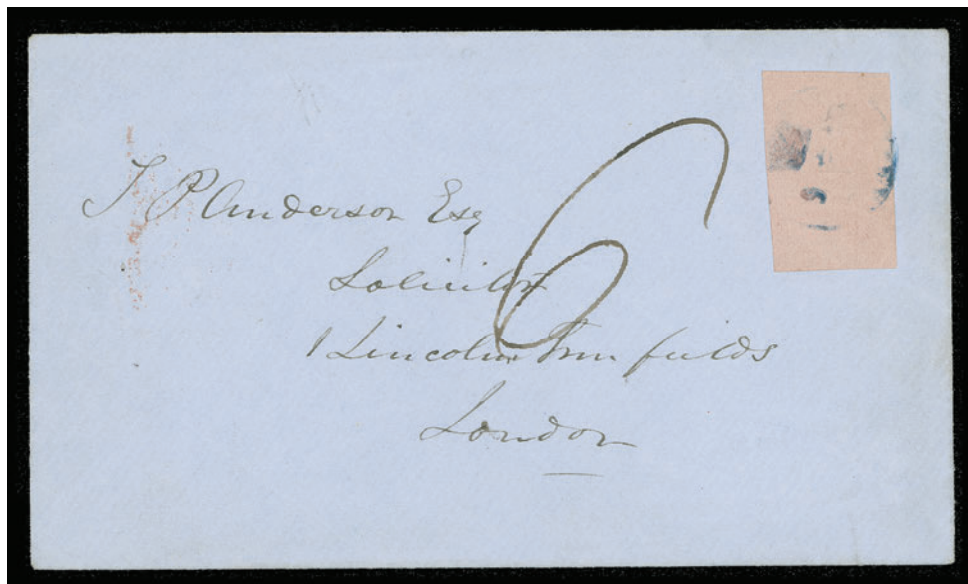 J P Anderson Esq
Solicitor
1 Lincolns Inn fields
London
6